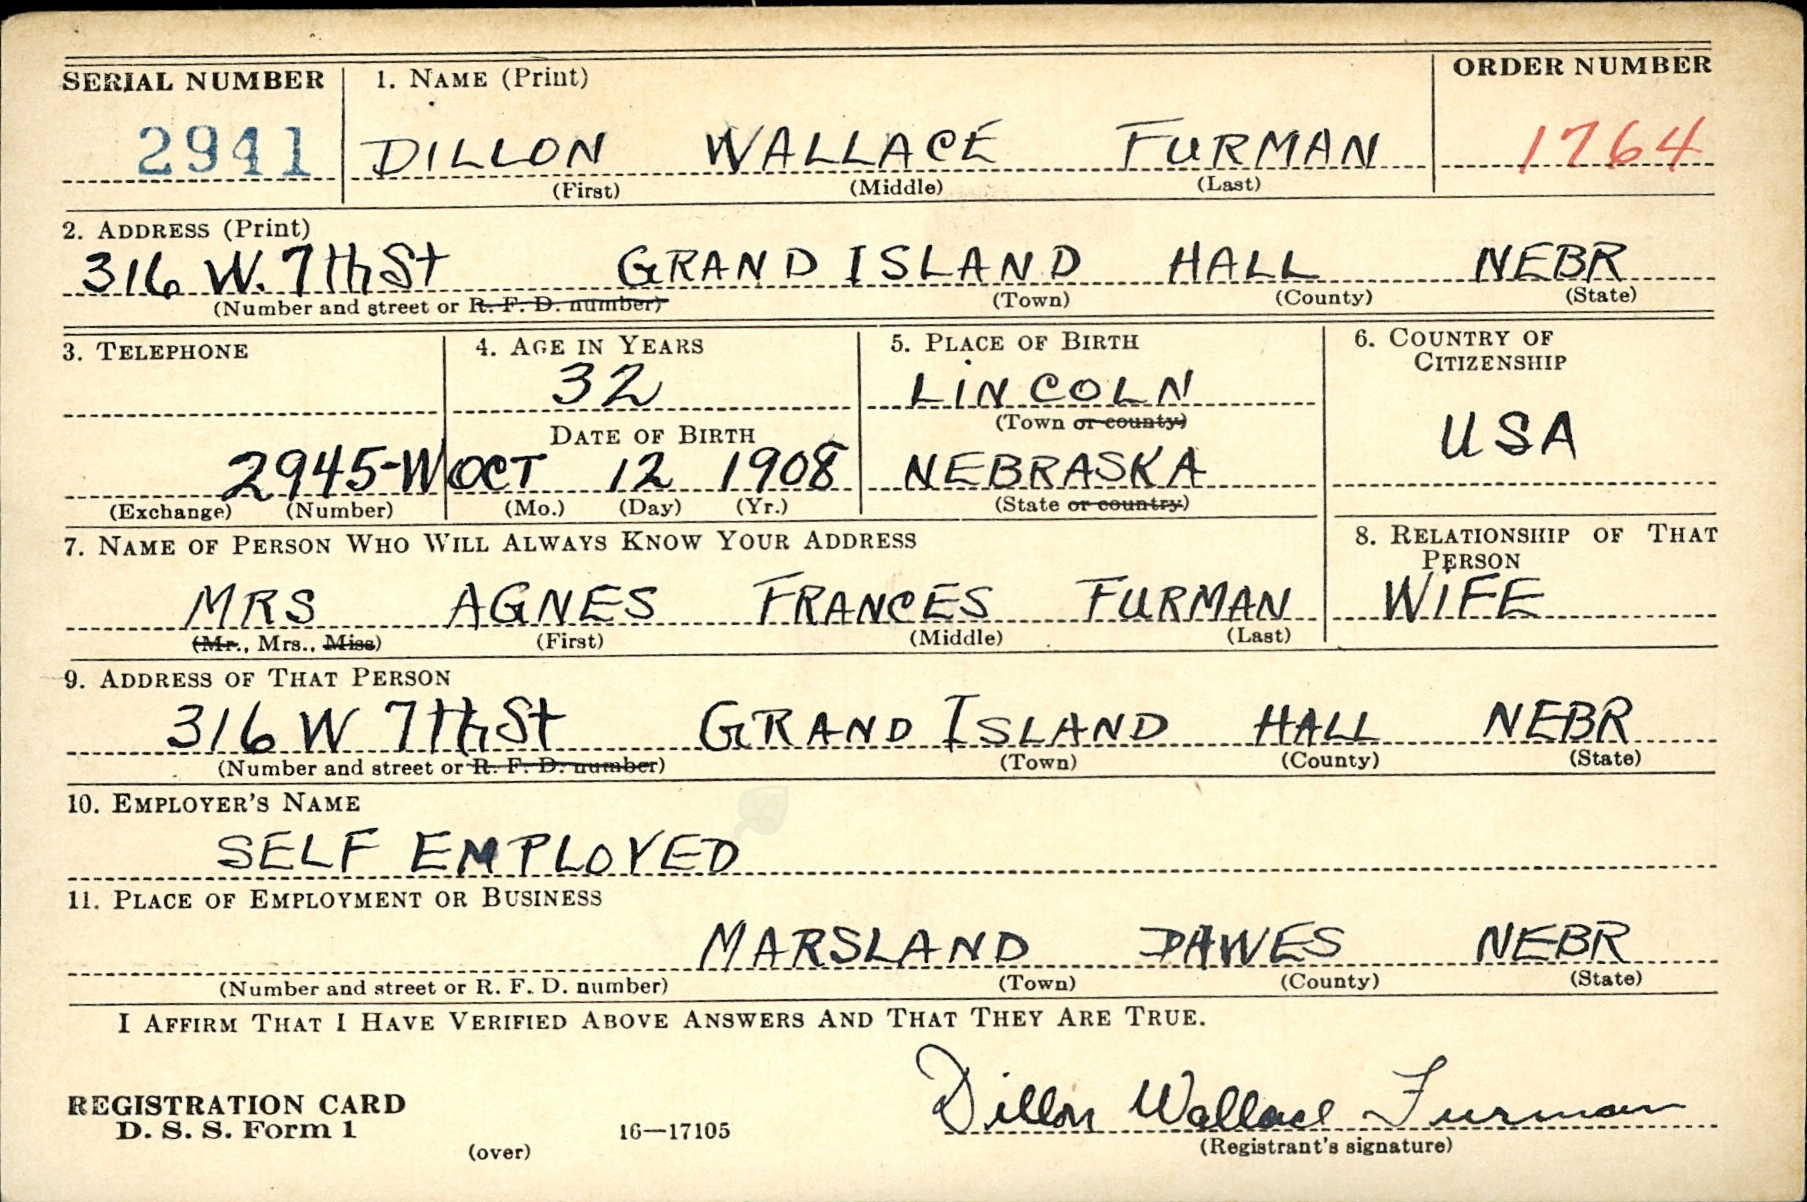 SERIAL NUMBER 1. NAME (Print) ORDER NUMBER
2941 DILLON WALLACE FURMAN 1764
(First) (Middle) (Last)
2. ADDRESS (Print)
316 W. 7th St GRAND ISLAND HALL NEBR
(Number and street or R. F. D. number) (Town) (County) (State)
3. TELEPHONE 4. AGE IN YEARS 5. PLACE OF BIRTH 6. COUNTRY OF
CITIZENSHIP
32 LINCOLN
(Town or county)
DATE OF BIRTH USA
2945-W OCT 12 1908 NEBRASKA
(Exchange) (Number) (Mo.) (Day) (Yr.) (State or country)
7. NAME OF PERSON WHO WILL ALWAYS KNOW YOUR ADDRESS 8. RELATIONSHIP OF THAT
PERSON
MRS AGNES FRANCES FURMAN WIFE
(Mr., Mrs., Miss) (First) (Middle) (Last)
9. ADDRESS OF THAT PERSON
316 W 7th St GRAND ISLAND HALL NEBR
(Number and street or R. F. D. number) (Town) (County) (State)
10. EMPLOYER'S NAME
SELF EMPLOYED
11. PLACE OF EMPLOYMENT OR BUSINESS
MARSLAND DAWES NEBR
(Number and street or R. F. D. number) (Town) (County) (State)
I AFFIRM THAT I HAVE VERIFIED ABOVE ANSWERS AND THAT THEY ARE TRUE.
Dillon Wallace Furman
REGISTRATION CARD
D. S. S. Form 1 16—17105 (Registrant's signature)
(over)